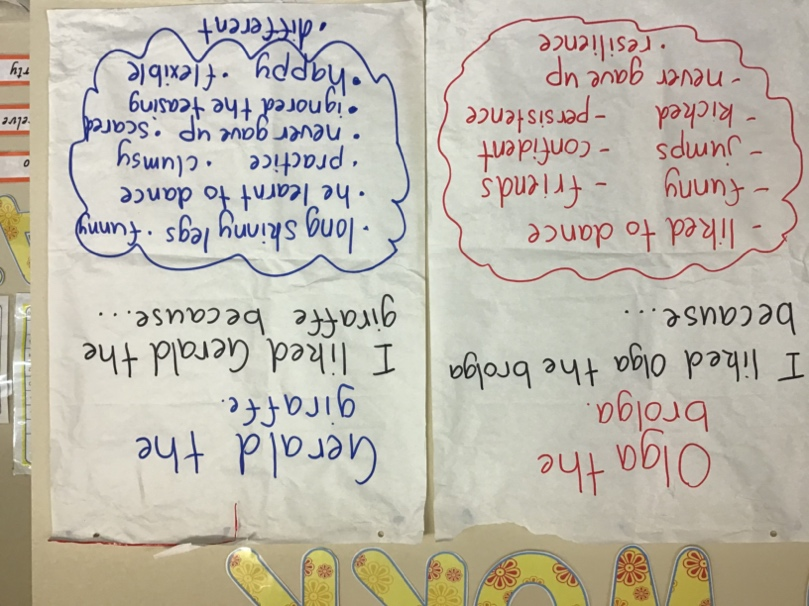 Olga the
brolga.
I liked Olga the brolga
because...
- liked to dance
- funny - friends
- jumps - confident
- kicked - persistence
- never gave up
• resilience
Gerald the
giraffe.
I liked Gerald the
giraffe because...
• long skinny legs • funny
• he learnt to dance
• practice • clumsy
• never gave up • scared
• ignored the teasing
• happy • flexible
• different